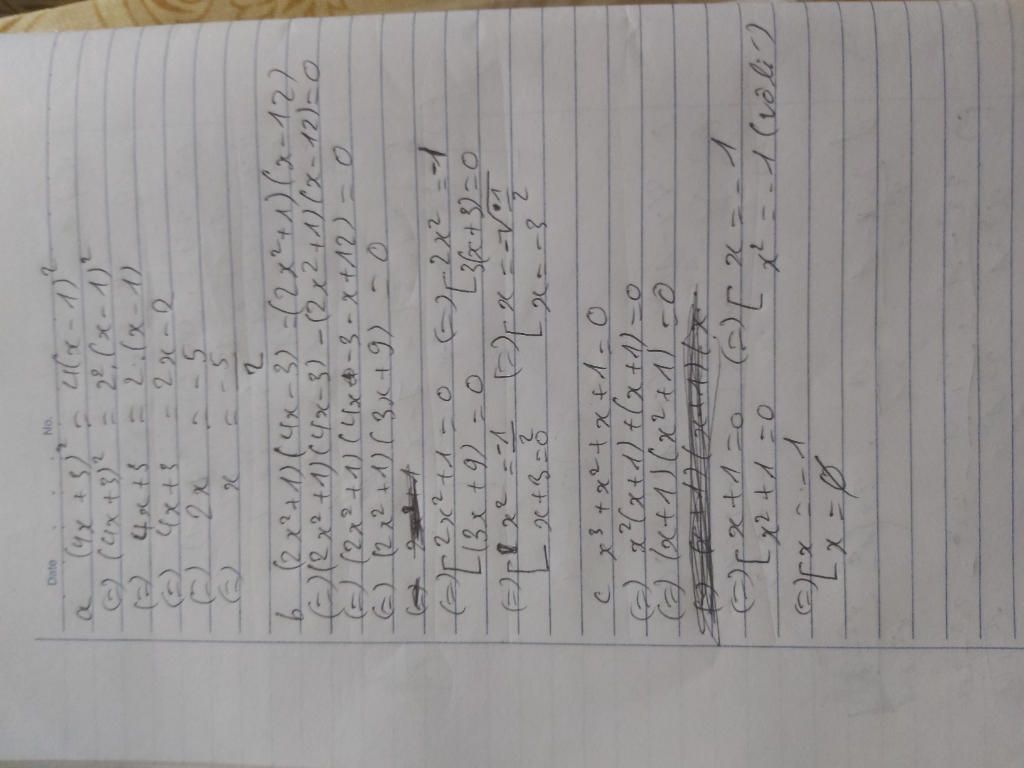 Date No.
a (4x+3)² = 4(x-1)²
(=) (4x+3)² = 2².(x-1)²
(=) 4x+3 = 2.(x-1)
(=) 4x+3 = 2x-2
(=) 2x = -5
(=) x = -5/2
b (2x²+1)(4x-3) = (2x²+1)(x-12)
(=) (2x²+1)(4x-3) - (2x2+1)(x-12) = 0
(=) (2x²+1)(4x-3-x+12) = 0
(=) (2x²+1)(3x+9) = 0
(=) [2x²+1=0 (=) [2x²=-1
[(3x+9)=0 [3(x+3)=0
(=) [x²=-1/2 (=) [x=-√1/2
[x+3=0 [x=-3
c x³+x²+x+1=0
(=) x²(x+1)+(x+1)=0
(=) (x+1)(x²+1)=0
(=) [x+1=0 (=) [x=-1
[x²+1=0 x²=-1 (vô lí)
(=) [x=-1
[x=∅